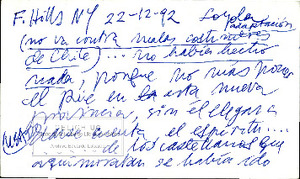 F. Hills NY 22-12-92 Sor Ada
adaptación
(no va contra malas costumbres
de Chile) ... no había hecho
nada, porque no mas poner
el pie en la esta nueva
provincia, sin él llegar a
darse cuenta el espíritu...
de los castellanos que
aquí moraban se había ido